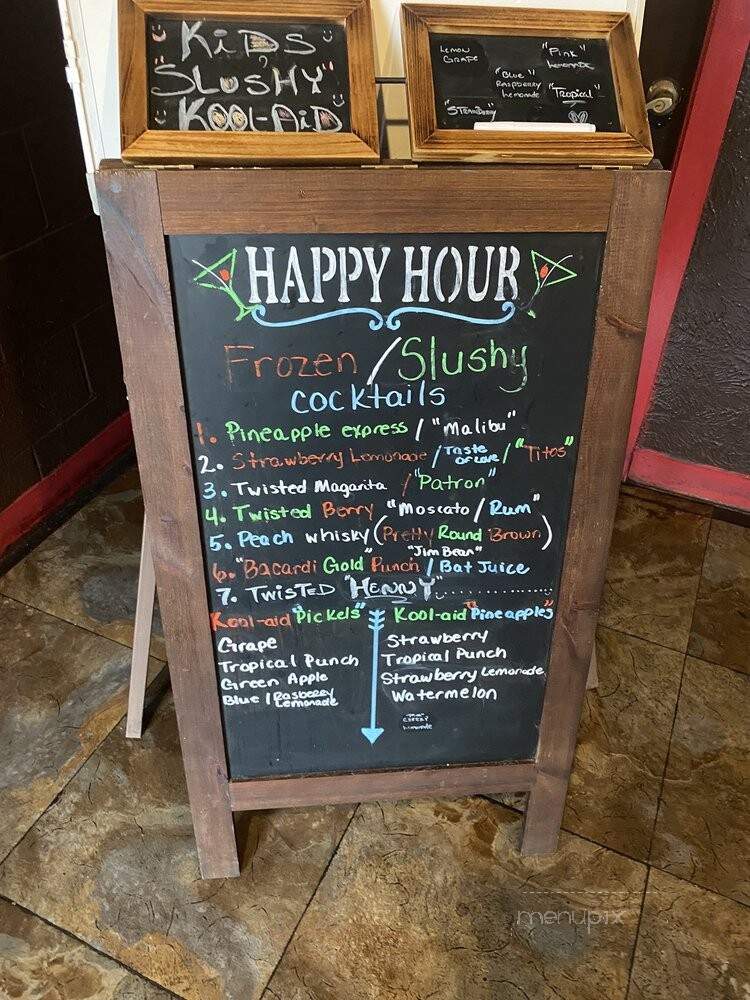 KiDS
"SLUSHY"
KOOL-AiD
LEMON
GRAPE
"PiNK"
Lemonade
"BLUE"
RASPBERRY
Lemonade
"Tropical"
"STRAWBERRY"
HAPPY HOUR
Frozen / Slushy
cocktails
1. Pineapple express / "Malibu"
2. Strawberry Lemonade / Taste of Love / "Titos"
3. Twisted Magarita / "Patron"
4. Twisted Berry "Moscato / Rum"
5. Peach whisky (Pretty Round Brown)
"Jim Bean"
6. "Bacardi Gold" Punch / Bat Juice
7. TWiSTED "HENNY"
Kool-aid "Pickels"
Grape
Tropical Punch
Green Apple
Blue / Rasberry Lemonade
Kool-aid "Pineapples"
Strawberry
Tropical Punch
Strawberry Lemonade
Watermelon
Lemonade
menupix